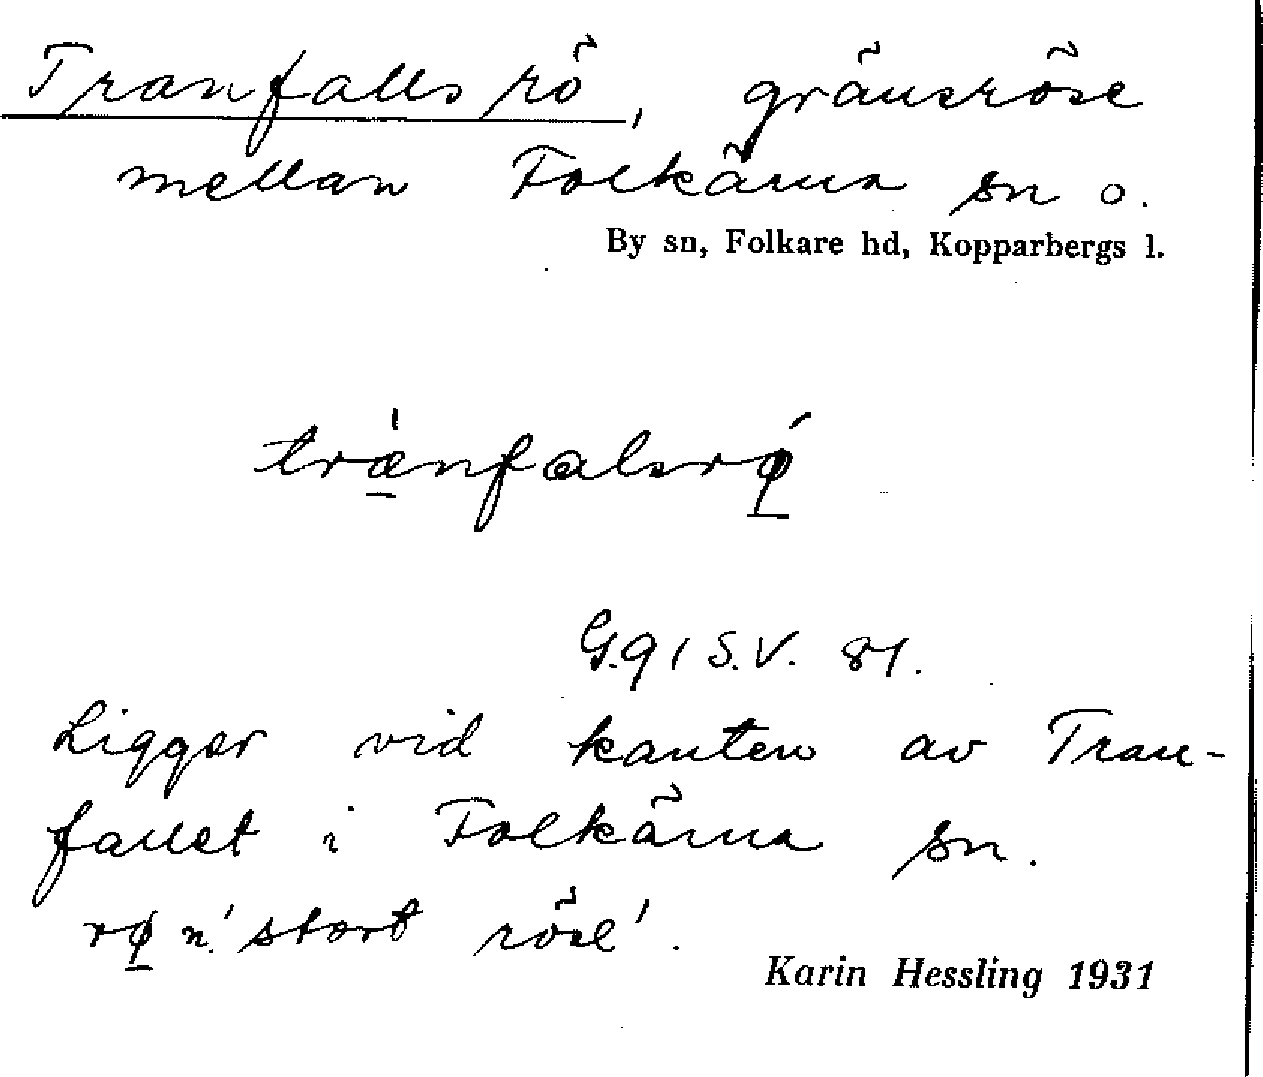 Tranfallsrö, gränsröse
mellan Folkärna sn o.
By sn, Folkare hd, Kopparbergs l.
trànfalsrǿ
G.9 1 S.V. 81.
Ligger vid kanten av Tran-
fallet i Folkärna sn.
rø n. 'stort röse'.
Karin Hessling 1931